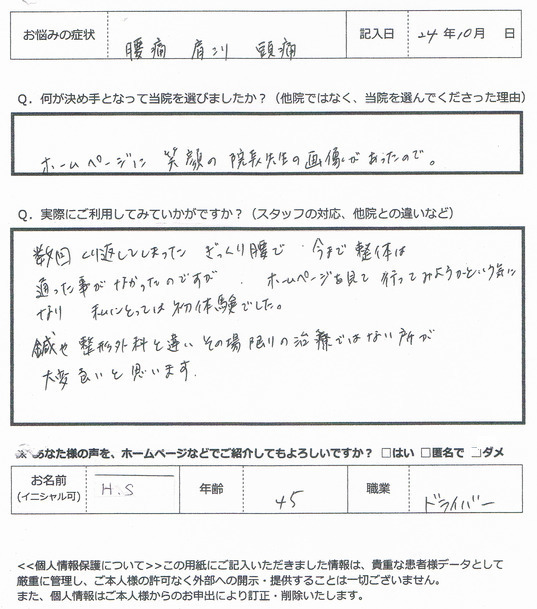 お悩みの症状 腰痛 肩こり 頭痛 記入日 24年10月 日
Q．何が決め手となって当院を選びましたか？（他院ではなく、当院を選んでくださった理由）
ホームページに 笑顔の 院長先生の画像があったので。
Q．実際にご利用してみていかがですか？（スタッフの対応、他院との違いなど）
数回 くり返してしまった ぎっくり腰で 今まで 整体は
通った事が なかったのですが、ホームページを見て 行ってみようかという気に
なり 私にとっては 初体験でした。
鍼や 整形外科と違い その場限りの治療ではない所が
大変良いと思います。
※ あなた様の声を、ホームページなどでご紹介してもよろしいですか？ □はい □匿名で □ダメ
お名前 (イニシャル可) H.S 年齢 45 職業 ドライバー
<<個人情報保護について>>この用紙にご記入いただきました情報は、貴重な患者様データとして
厳重に管理し、ご本人様の許可なく外部への開示・提供することは一切ございません。
また、個人情報はご本人様からのお申出により訂正・削除いたします。